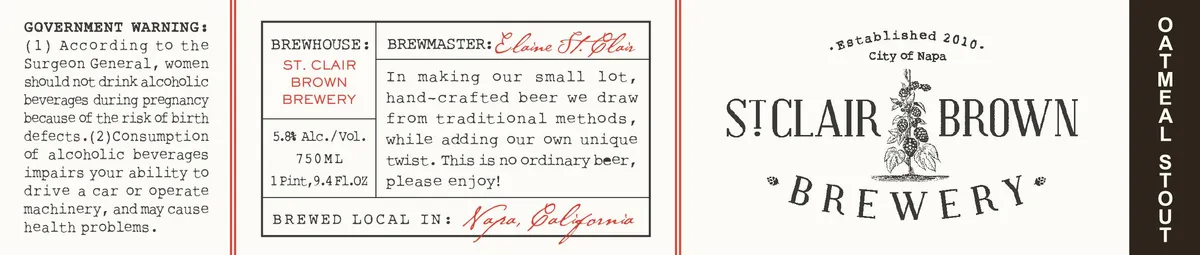 GOVERNMENT WARNING:
(1) According to the
Surgeon General, women
should not drink alcoholic
beverages during pregnancy
because of the risk of birth
defects.(2)Consumption
of alcoholic beverages
impairs your ability to
drive a car or operate
machinery, and may cause
health problems.
BREWHOUSE:
ST. CLAIR
BROWN
BREWERY
5.8% Alc./Vol.
750ML
1 Pint, 9.4 Fl.OZ
BREWMASTER: Elaine St. Clair
In making our small lot,
hand-crafted beer we draw
from traditional methods,
while adding our own unique
twist. This is no ordinary beer,
please enjoy!
BREWED LOCAL IN: Napa, California
.Established 2010.
City of Napa
ST. CLAIR BROWN
BREWERY
OATMEAL STOUT